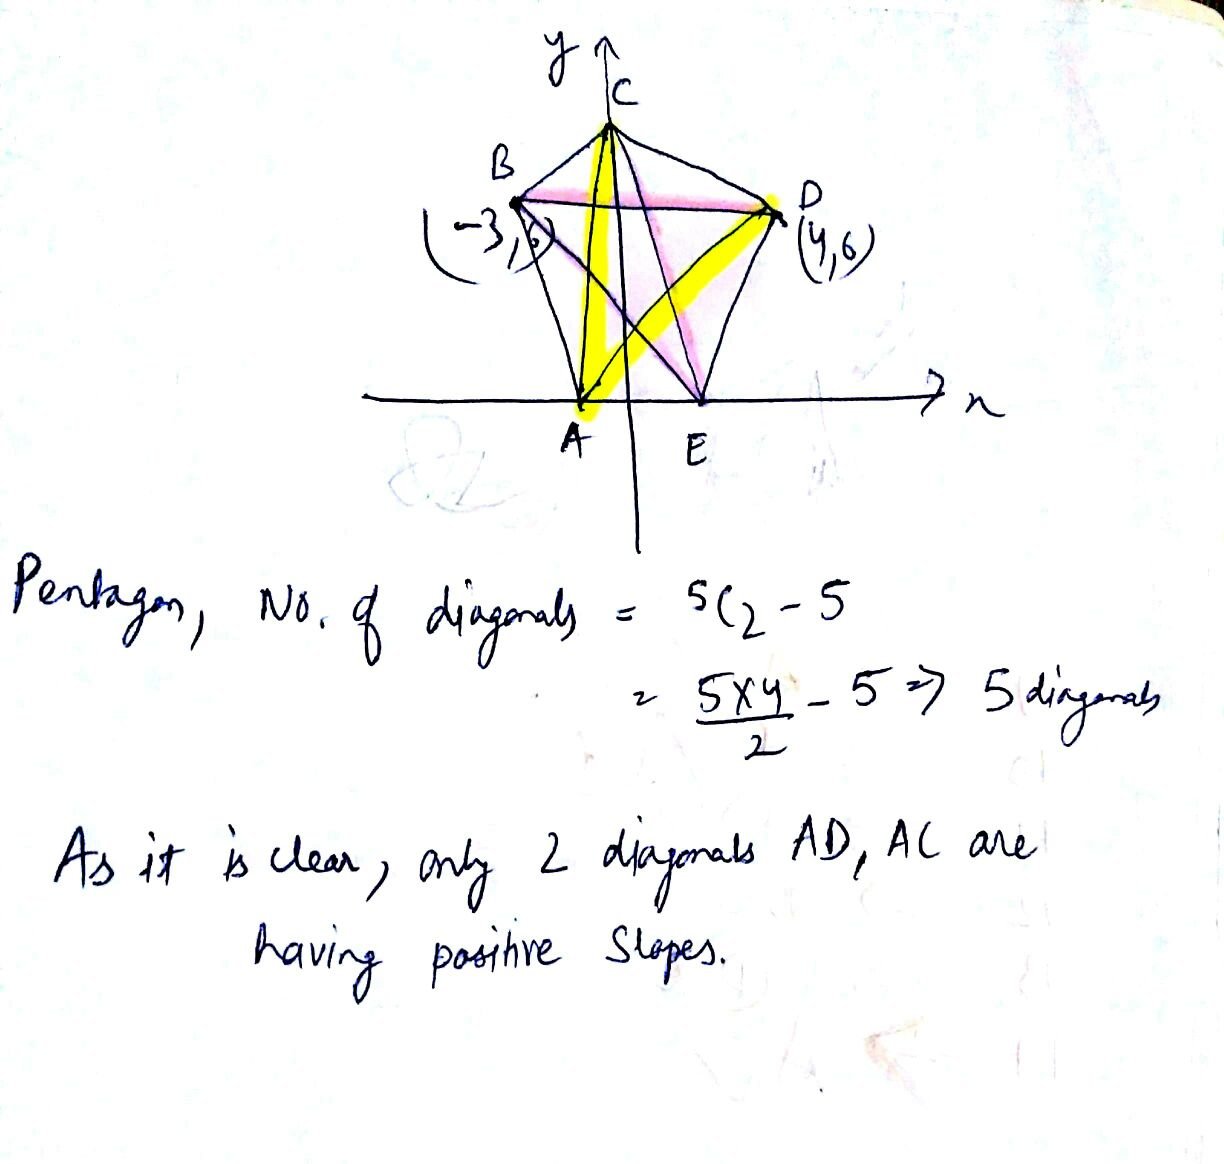 y
C
B
D
(-3,6)
(4,6)
x
A
E
Pentagon, No. of diagonals = 5C2 - 5
= 5x4/2 - 5 => 5 diagonals
As it is clear, only 2 diagonals AD, AC are
having positive slopes.